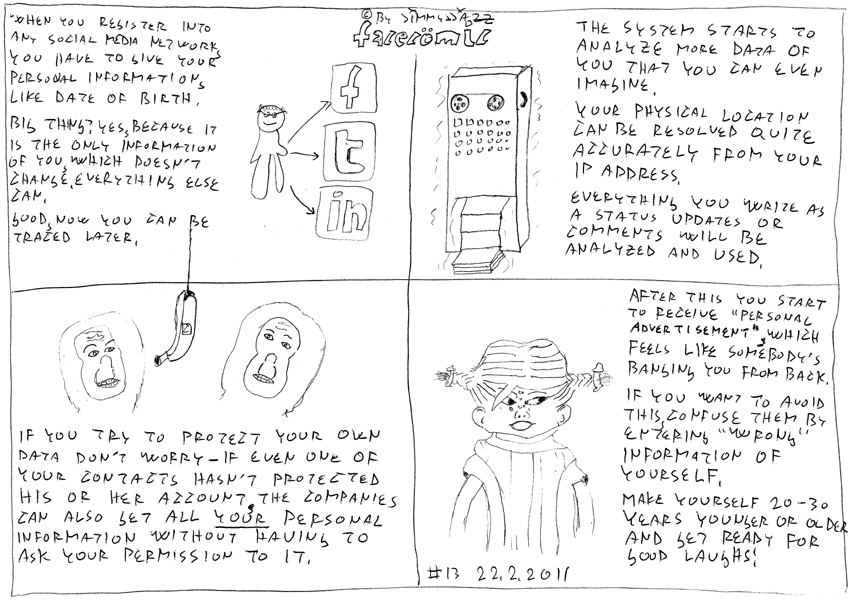 © BY JIMMY JAZZ
facerömir
"WHEN YOU REGISTER INTO
ANY SOCIAL MEDIA NETWORK,
YOU HAVE TO GIVE YOUR
PERSONAL INFORMATION,
LIKE DATE OF BIRTH.
BIG THING? YES, BECAUSE IT
IS THE ONLY INFORMATION
OF YOU, WHICH DOESN'T
CHANGE, EVERYTHING ELSE
CAN.
GOOD, NOW YOU CAN BE
TRACED LATER.
f
t
in
THE SYSTEM STARTS TO
ANALYZE MORE DATA OF
YOU THAT YOU CAN EVEN
IMAGINE.
YOUR PHYSICAL LOCATION
CAN BE RESOLVED QUITE
ACCURATELY FROM YOUR
IP ADDRESS.
EVERYTHING YOU WRITE AS
A STATUS UPDATES OR
COMMENTS WILL BE
ANALYZED AND USED.
IF YOU TRY TO PROTECT YOUR OWN
DATA DON'T WORRY - IF EVEN ONE OF
YOUR CONTACTS HASN'T PROTECTED
HIS OR HER ACCOUNT, THE COMPANIES
CAN ALSO GET ALL YOUR PERSONAL
INFORMATION WITHOUT HAVING TO
ASK YOUR PERMISSION TO IT.
AFTER THIS YOU START
TO RECEIVE "PERSONAL
ADVERTISEMENT", WHICH
FEELS LIKE SOMEBODY'S
BANGING YOU FROM BACK.
IF YOU WANT TO AVOID
THIS, CONFUSE THEM BY
ENTERING "WRONG"
INFORMATION OF
YOURSELF.
MAKE YOURSELF 20-30
YEARS YOUNGER OR OLDER
AND GET READY FOR
GOOD LAUGHS!
#13 22.2.2011